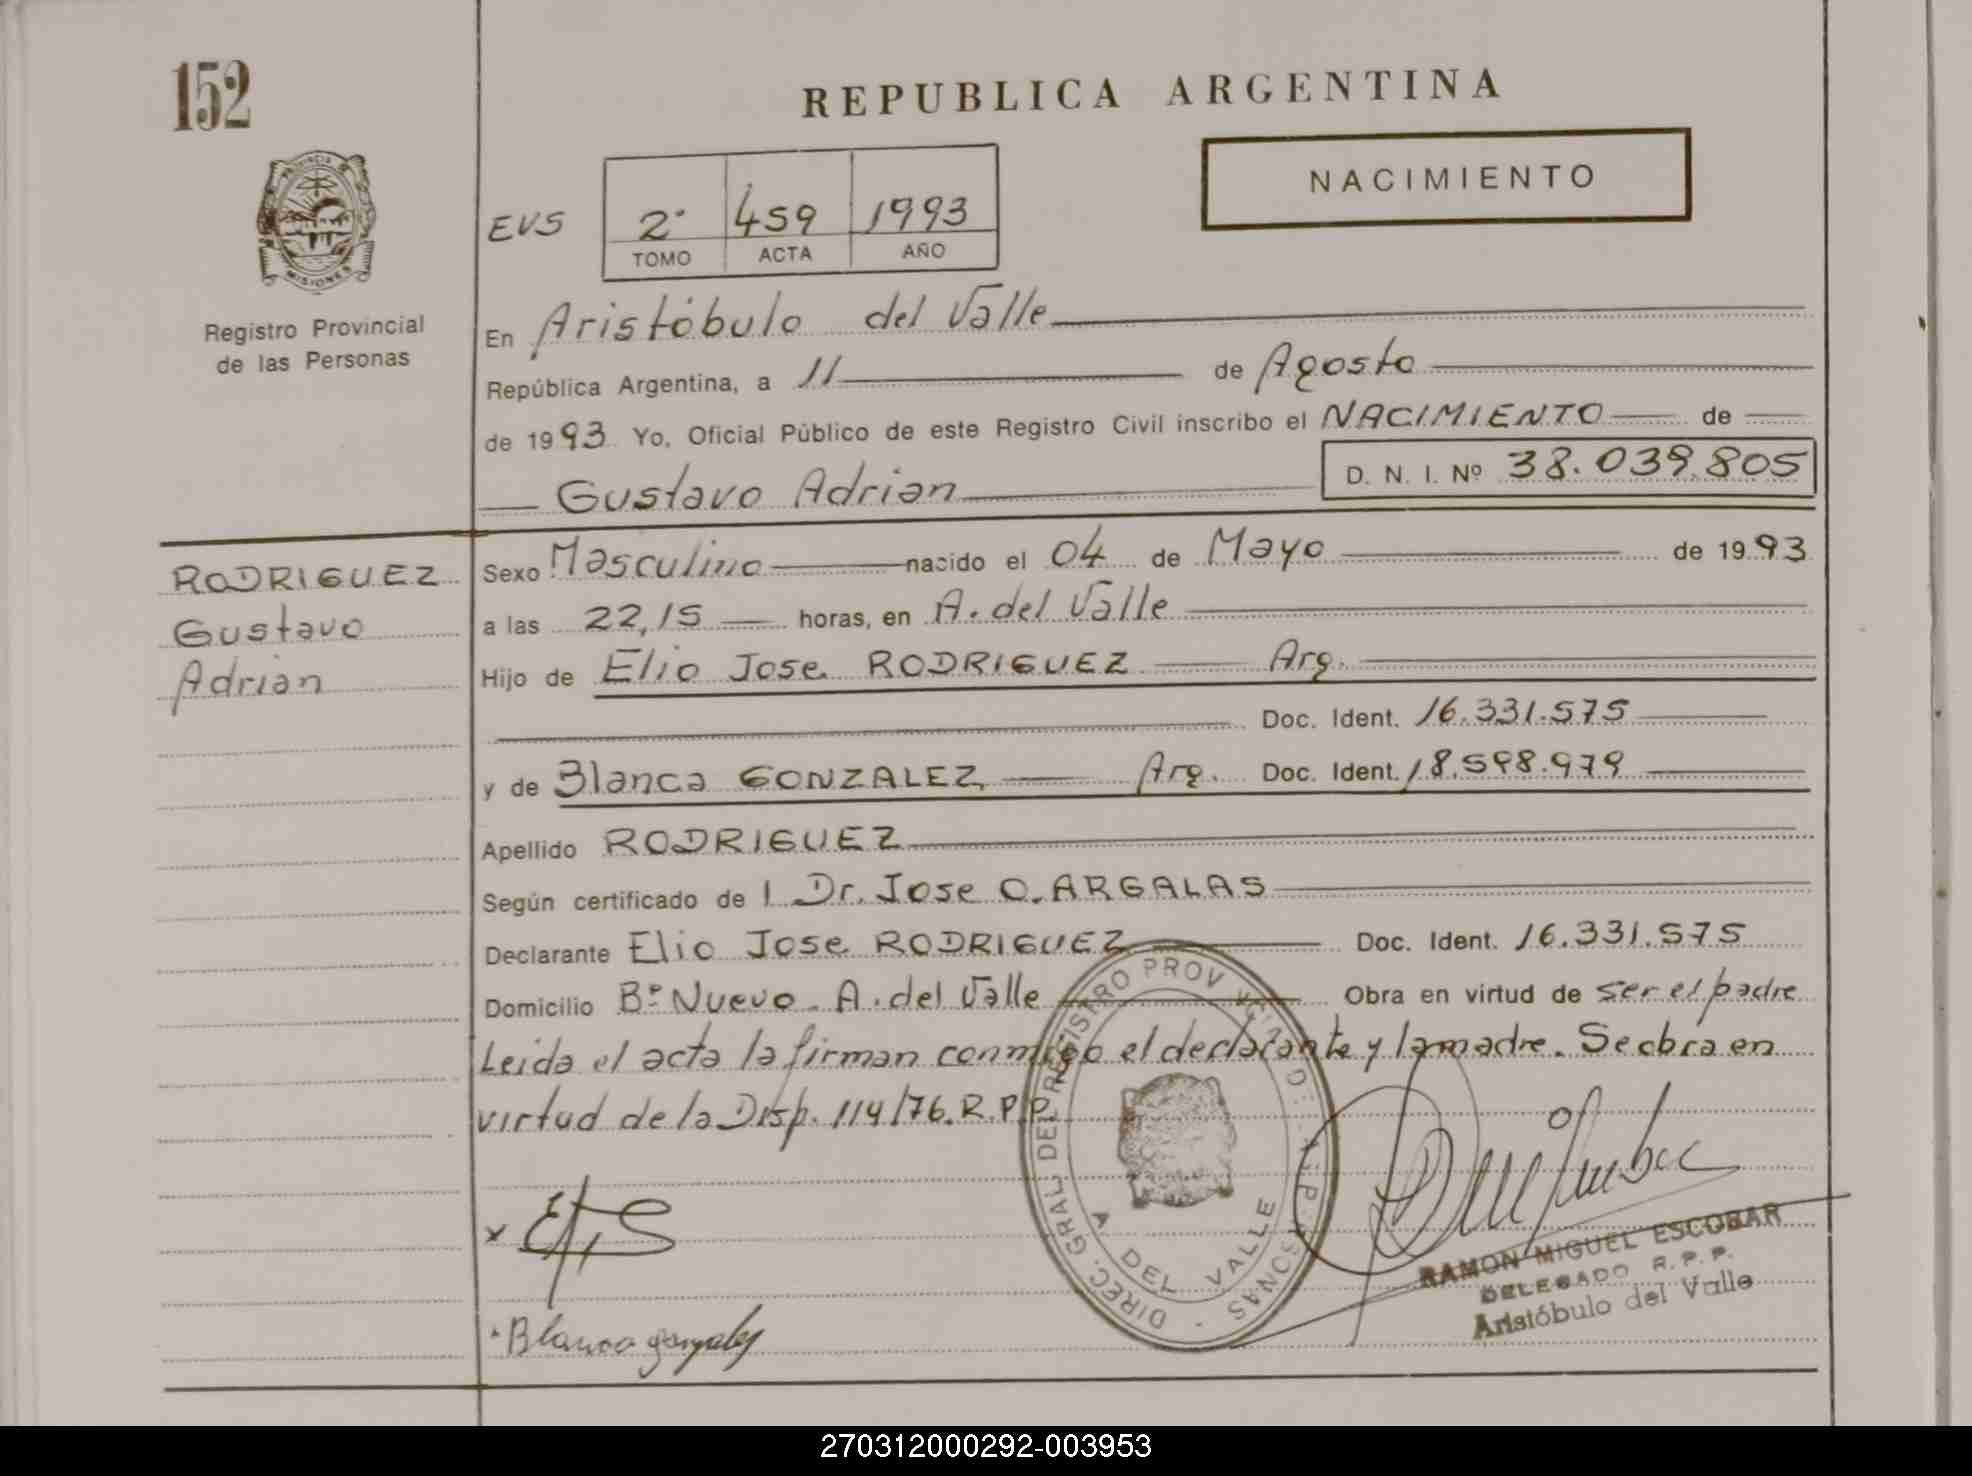 152
REPUBLICA ARGENTINA
NACIMIENTO
PROVINCIA DE
MISIONES
Registro Provincial
de las Personas
EVS
2° 459 1993
TOMO ACTA AÑO
En Aristóbulo del Valle
República Argentina, a 11 de Agosto
de 1993 Yo, Oficial Público de este Registro Civil inscribo el NACIMIENTO de
Gustavo Adrian D. N. I. Nº 38.039.805
RODRIGUEZ
Gustavo
Adrian
Sexo Masculino nacido el 04 de Mayo de 1993
a las 22,15 horas, en A. del Valle
Hijo de Elio Jose RODRIGUEZ Arg.
Doc. Ident. 16.331.575
y de Blanca GONZALEZ Arg. Doc. Ident. 18.598.979
Apellido RODRIGUEZ
Según certificado de l Dr. Jose O. ARGALAS
Declarante Elio Jose RODRIGUEZ Doc. Ident. 16.331.575
Domicilio B° Nuevo - A. del Valle Obra en virtud de ser el padre
Leida el acta la firman conmigo el declarante y la madre. Se obra en
virtud de la Disp. 114/76. R.P.P.
DIREC. GRAL. DEL REGISTRO PROV
A DEL VALLE
x
Blanca gonzalez
RAMON MIGUEL ESCOBAR
DELEGADO R.P.P.
Aristóbulo del Valle
270312000292-003953